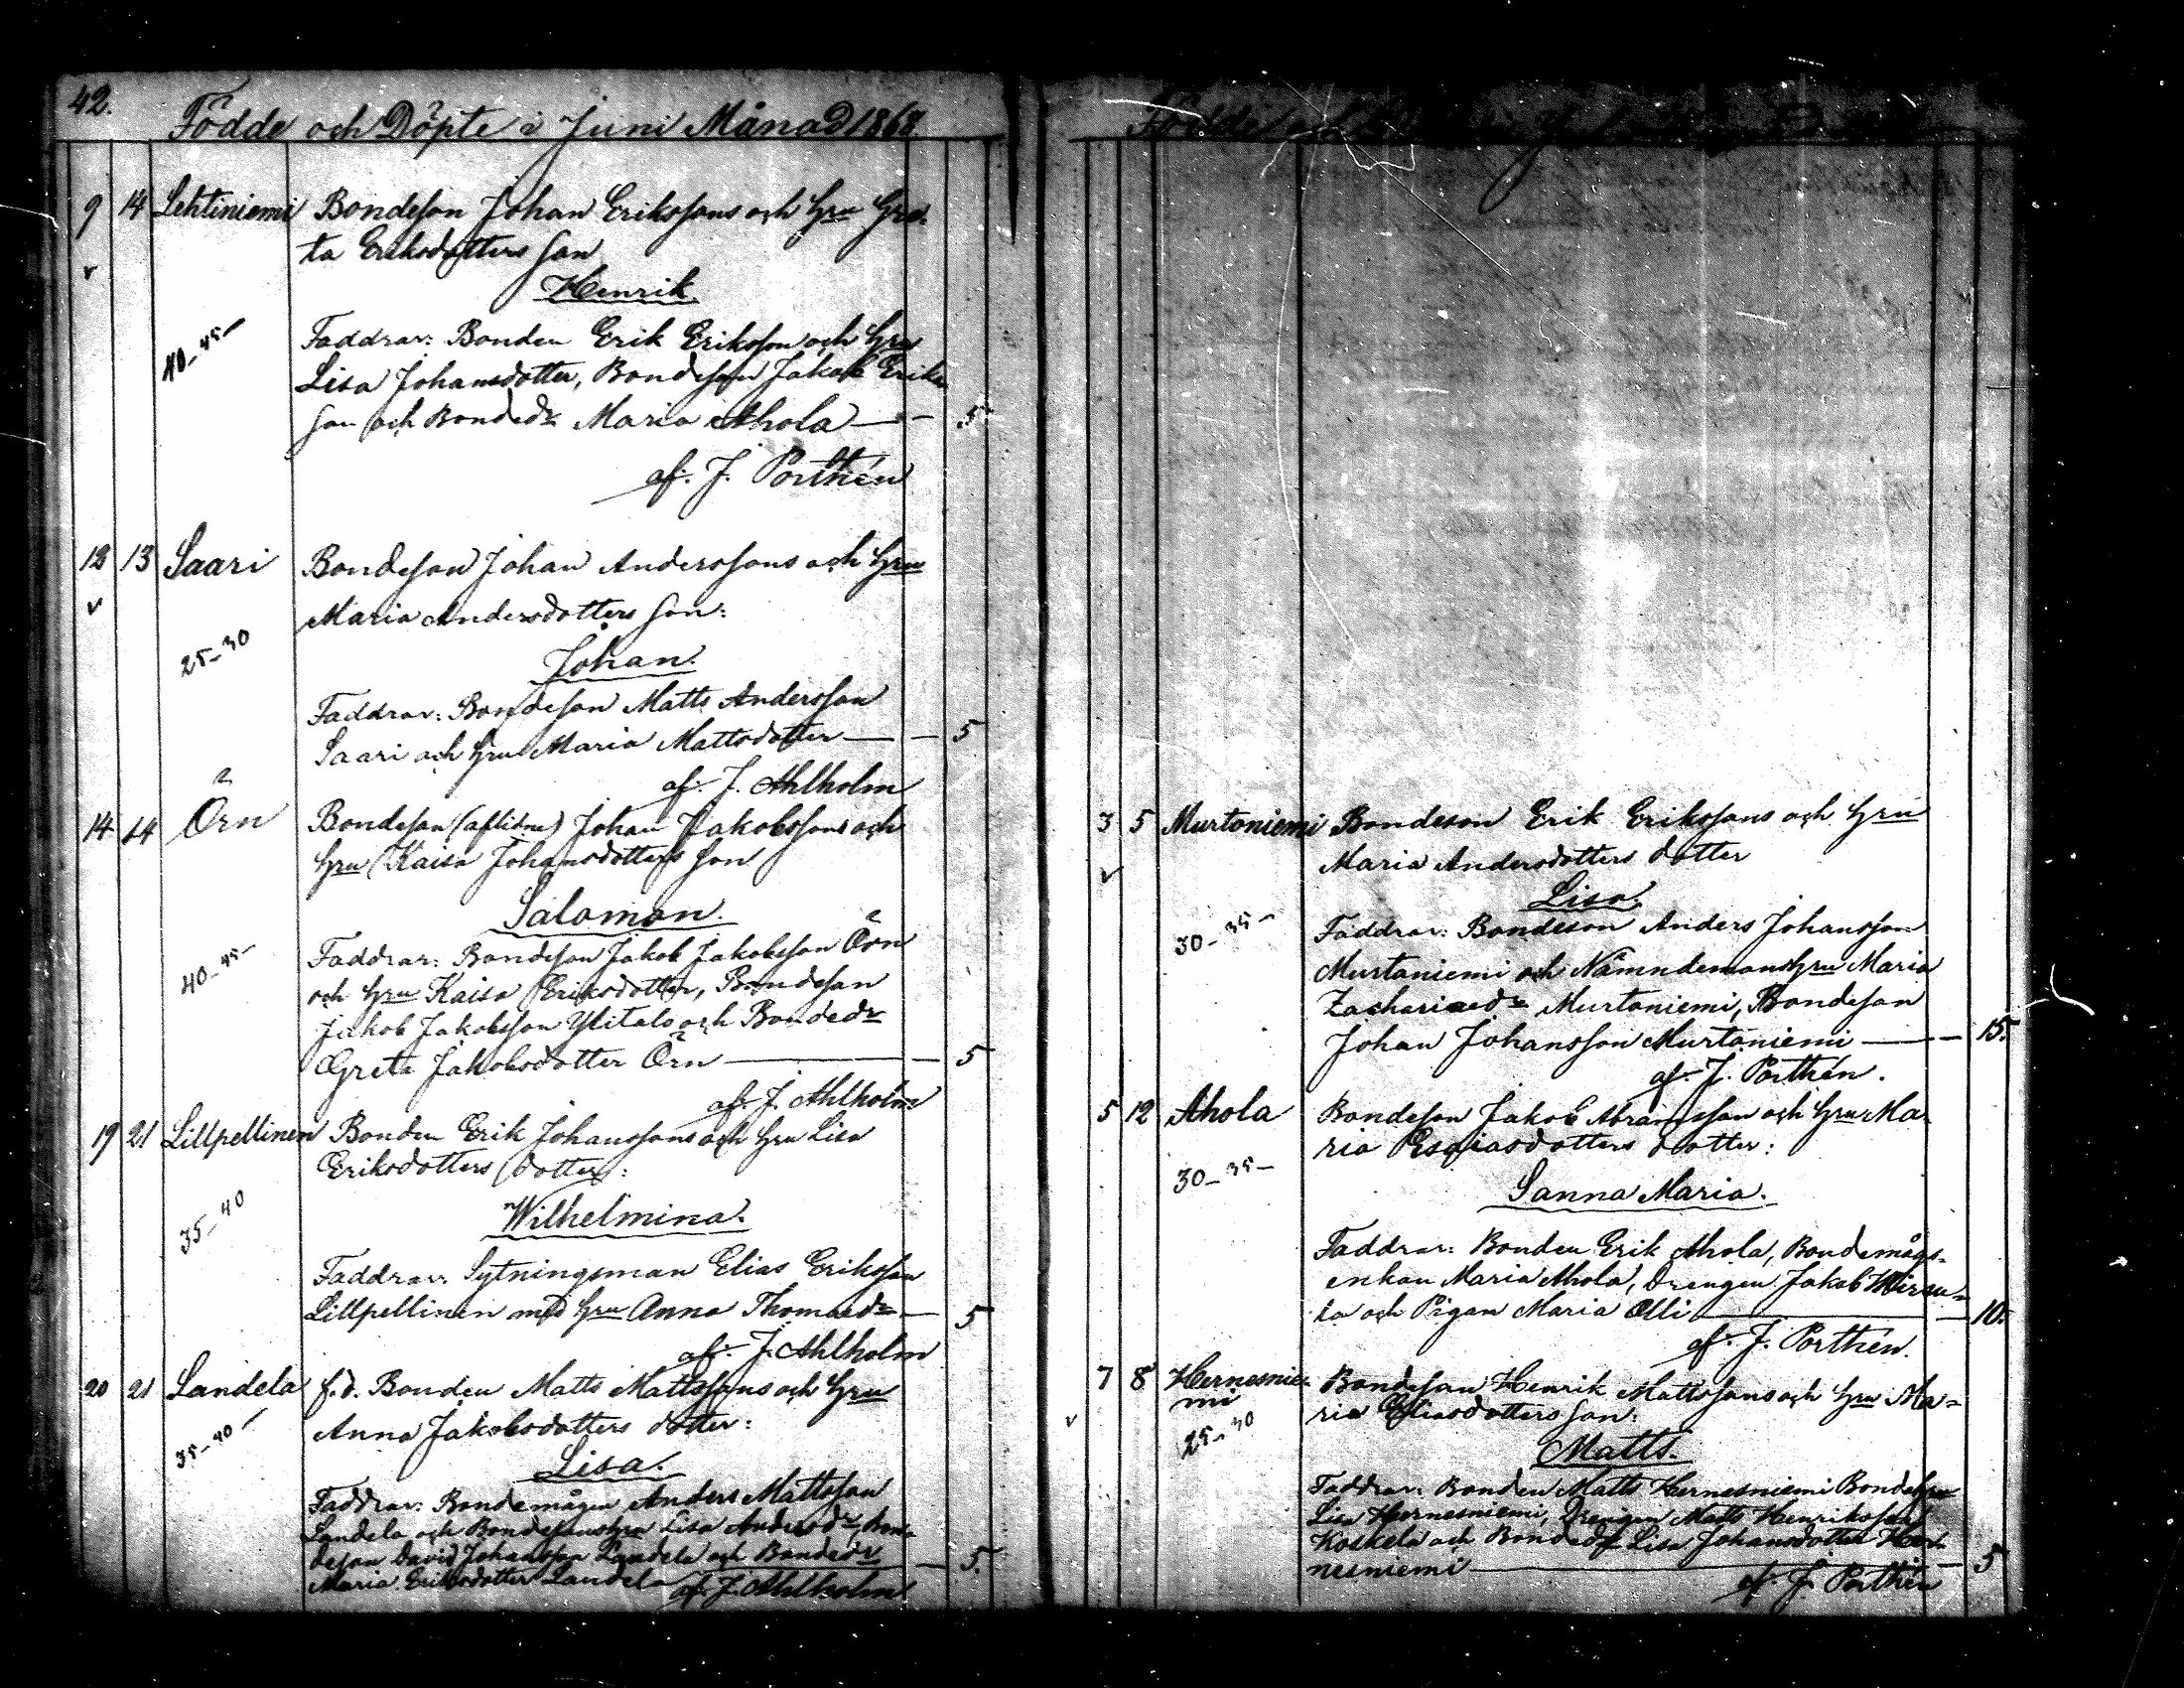 42.
Födde och Döpte i Juni Månad 1868
9 14 Lehtiniemi Bondeson Johan Erikssons och Hru Gre-
ta Eriksdotters son
Henrik
40-45
Faddrar: Bonden Erik Eriksson och Hru
Lisa Johansdotter, Bondeson Jakob Eriks
son och Bondedr Maria Ahola — 5
af. J. Porthén
12 13 Saari Bondeson Johan Anderssons och Hru
Maria Andersdotters son:
25-30
Johan.
Faddrar: Bondeson Matts Andersson
Saari och Hru Maria Mattsdotter — 5
af. J. Ahlholm
14 14 Örn Bondeson (aflidne) Johan Jakobssons och
Hru Kaisa Johansdotters son
Salomon.
40-45
Faddrar: Bondeson Jakob Jakobsson Örn
och Hru Kaisa Eriksdotter, Bondeson
Jakob Jakobsson Ylitalo och Bondedr
Greta Jakobsdotter Örn — 5
af. J. Ahlholm
19 21 Lillpellinen Bonden Erik Johanssons och Hru Lisa
Eriksdotters dotter:
35-40
Wilhelmina.
Faddrar: Sytningsman Elias Eriksson
Lillpellinen med Hru Anna Thomaedr — 5
af. J. Ahlholm
20 21 Landela f.d. Bonden Matts Mattssons och Hru
Anna Jakobsdotters dotter:
35-40
Lisa.
Faddrar: Bondemågen Anders Mattsson
Landela och Bondesonshru Lisa Andersdr, Bon-
deson David Johansson Landela och Bondedr
Maria Eriksdotter Landela — 5.
af. J. Ahlholm
3 5 Murtoniemi Bondeson Erik Erikssons och Hru
Maria Andersdotters dotter
Lisa
30-35
Faddrar: Bondeson Anders Johansson
Murtoniemi och Nämndemanshru Maria
Zachariaedr Murtoniemi, Bondeson
Johan Johansson Murtoniemi — 15.
af. J. Porthén.
5 12 Ahola Bondeson Jakob Abramsson och Hru Ma-
ria Esaiasdotters dotter:
30-35
Sanna Maria.
Faddrar: Bonden Erik Ahola, Bondemågs-
enkan Maria Ahola, Drengen Jakob
ta och Pigan Maria Olli — 10.
af. J. Porthén.
7 8 Hernesnie-
mi
Bondeson Henrik Mattssons och Hru Ma-
ria Eliasdotters son:
25-30
Matts.
Faddrar: Bonden Matts Hernesniemi Bondehru
Lisa Hernesniemi, Drengen Matts Henriksson
Koskela och Bondedr Lisa Johansdotter Her-
nesniemi — 5
af. J. Porthén